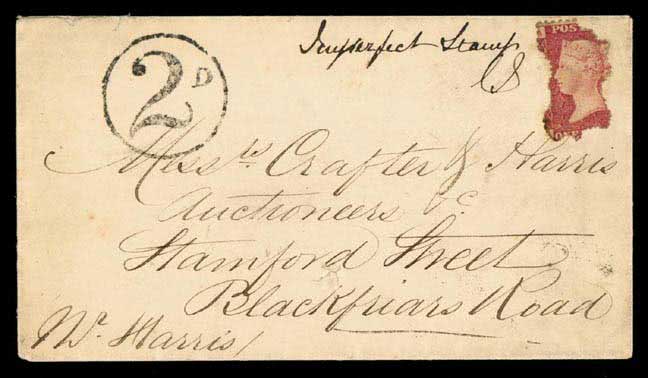 Imperfect Stamp
CS
POS
2D
Messrs Crafter & Harris
Auctioneers &c
Stamford Street
Blackfriars Road
Mr. Harris